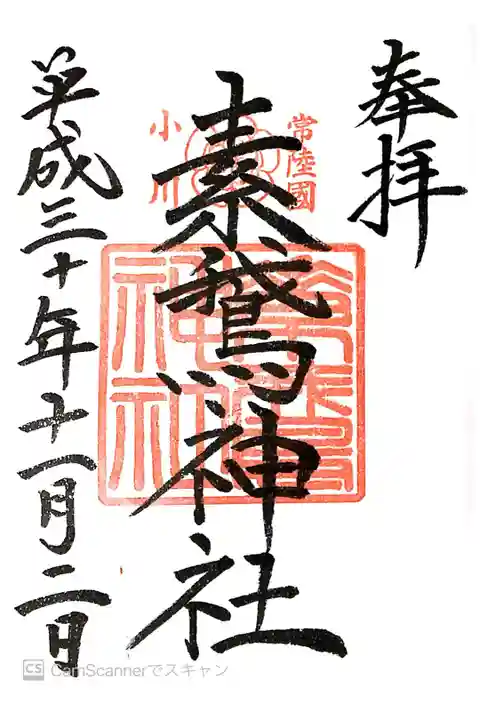 奉拝
常陸國
小川
素鵞神社
平成三十年十一月二日
CS CamScannerでスキャン